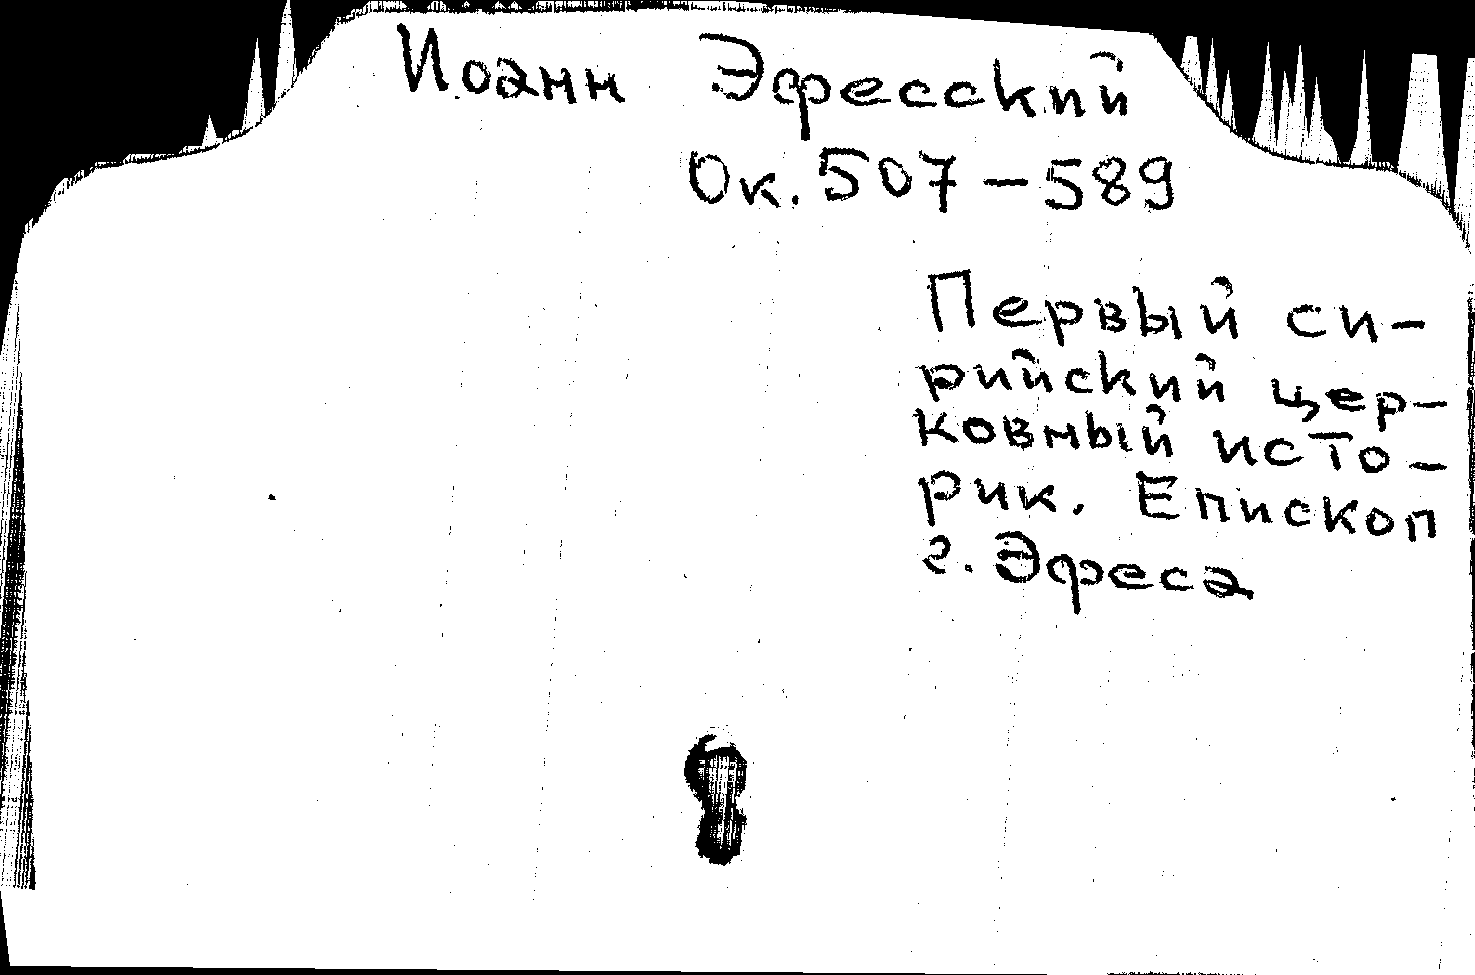 Иоанн Эфесский
Ок. 507-589
Первый си-
рийский цер-
ковный исто-
рик. Епископ
г. Эфеса